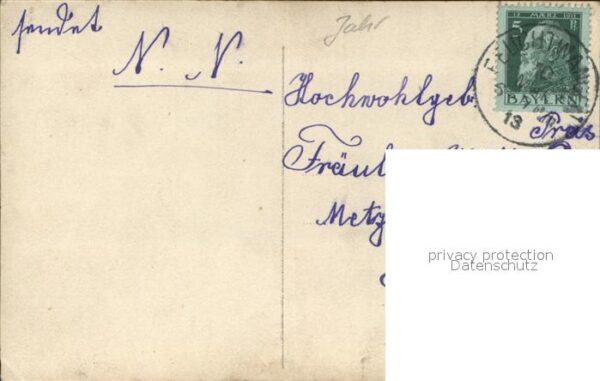 sendet
N. N.
Jahr
12. MÄRZ 1911
5
BAYERN
13
Hochwohlgeb.
Fräul
Metz
privacy protection
Datenschutz